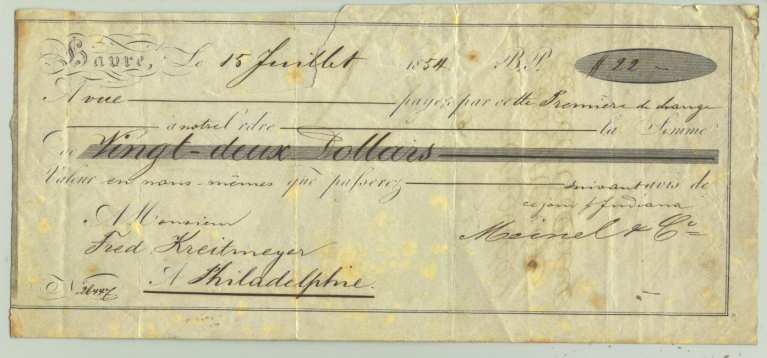 Havre, Le 15 Juillet 1854 B.P. $ 22 -
A vue payez par cette Première de change
a notre l'ordre la Somme
De Vingt-deux Dollars
Valeur en nous-mêmes que passerez suivant avis de
ce jour p Indiana
A Monsieur Meinel & Co
Fred Kreitmeyer
A Philadelphie.
No 26447